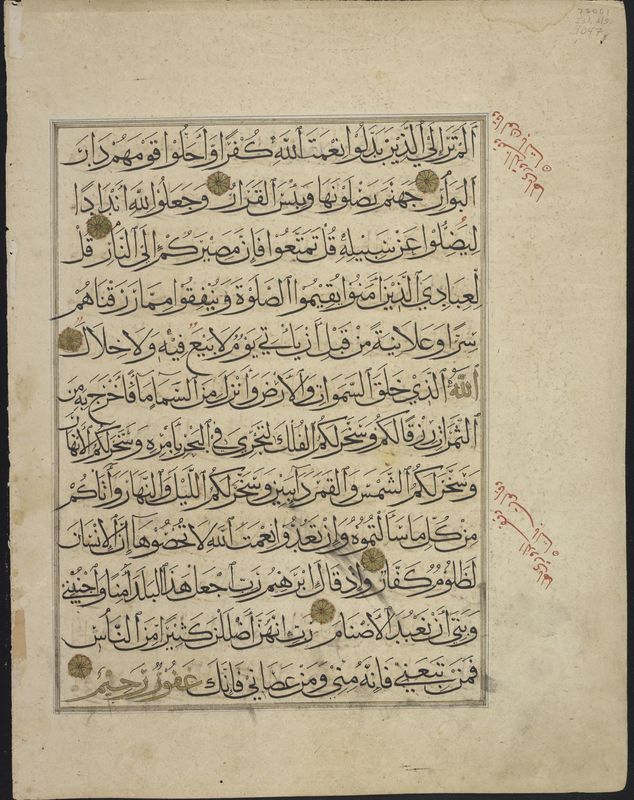 75001
Isl. Ms.
1047
ألم تر إلى الذين بدلوا نعمت الله كفرا وأحلوا قومهم دار
البوار جهنم يصلونها وبئس القرار وجعلوا لله أندادا
ليضلوا عن سبيله قل تمتعوا فإن مصيركم إلى النار قل
لعبادي الذين آمنوا يقيموا الصلوة وينفقوا مما رزقناهم
سرا وعلانية من قبل أن يأتي يوم لا بيع فيه ولا خلال
الله الذي خلق السموات والأرض وأنزل من السماء ماء فأخرج به من
الثمرات رزقا لكم وسخر لكم الفلك لتجري في البحر بأمره وسخر لكم الأنهار
وسخر لكم الشمس والقمر دائبين وسخر لكم الليل والنهار وآتاكم
من كل ما سألتموه وإن تعدوا نعمت الله لا تحصوها إن الإنسان
لظلوم كفار وإذ قال إبرهيم رب اجعل هذا البلد آمنا واجنبني
وبني أن نعبد الأصنام رب إنهن أضللن كثيرا من الناس
فمن تبعني فإنه مني ومن عصاني فإنك غفور رحيم